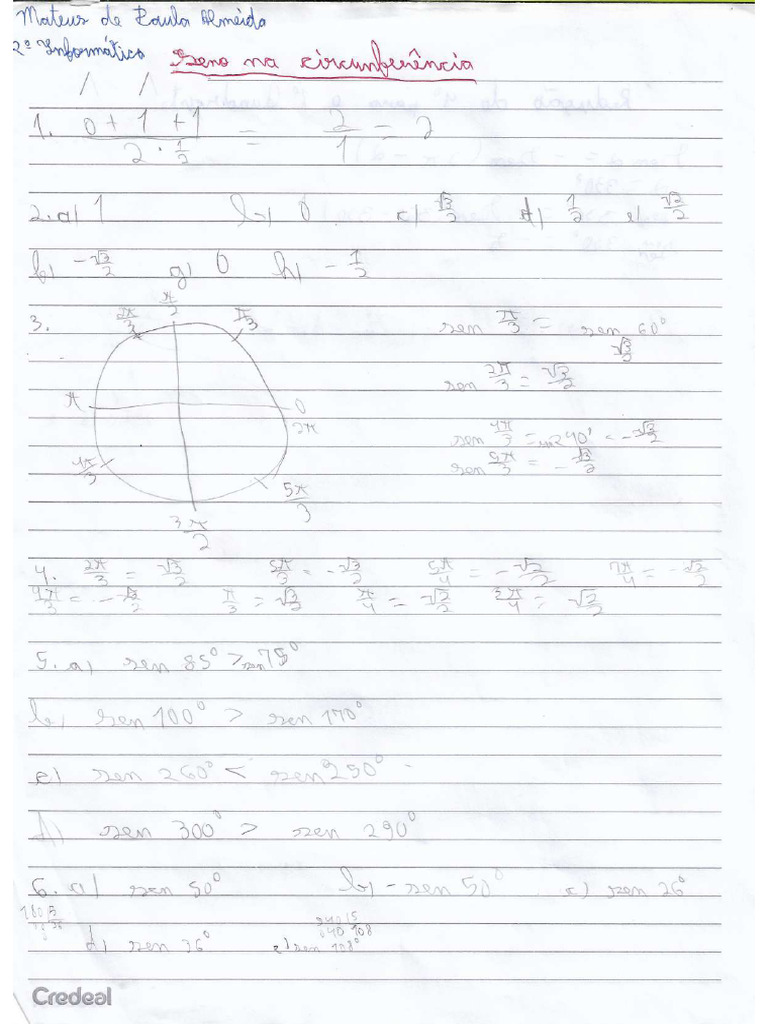 Mateus de Paula Almeida
2º Informática Seno na circunferência
1. (0 + 1 + 1)/(2 · 1/2) = 2/1 = 2
2. a) 1 b) 0 c) √3/2 d) 1/2 e) √2/2
f) -√3/2 g) 0 h) -1/2
3. 2π/3 π/2 π/3 sen π/3 = sen 60° √3/2
sen 2π/3 = √3/2
π 0 2π
sen 4π/3 = sen 240° = -√3/2
4π/3 5π/3 sen 5π/3 = -√3/2
3π/2
4. 2π/3 = √3/2 5π/3 = -√3/2 5π/4 = -√2/2 7π/4 = -√2/2
4π/3 = -√3/2 π/3 = √3/2 π/4 = √2/2 3π/4 = √2/2
5. a) sen 85° > sen 75°
b) sen 100° > sen 170°
c) sen 260° < sen 250°
d) sen 300° > sen 290°
6. a) sen 50° b) - sen 50° c) sen 26°
180 5
36
d) sen 36° e) sen 108°
540 5
040 108
Credeal